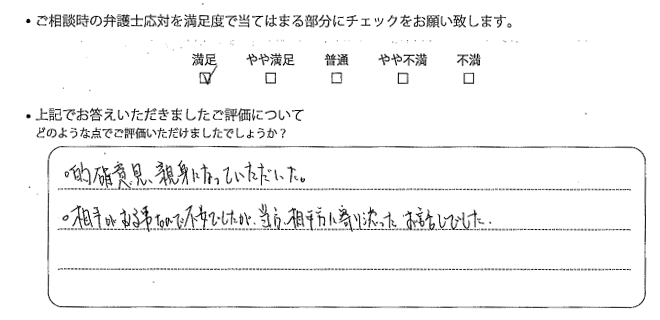 ・ご相談時の弁護士応対を満足度で当てはまる部分にチェックをお願い致します。
満足 やや満足 普通 やや不満 不満
☑ □ □ □ □
・上記でお答えいただきましたご評価について
どのような点でご評価いただけましたでしょうか？
○的確意見、親身になっていただいた。
○相手がある事なので不安でしたが、当方、相手方に寄り添った お話しでした。